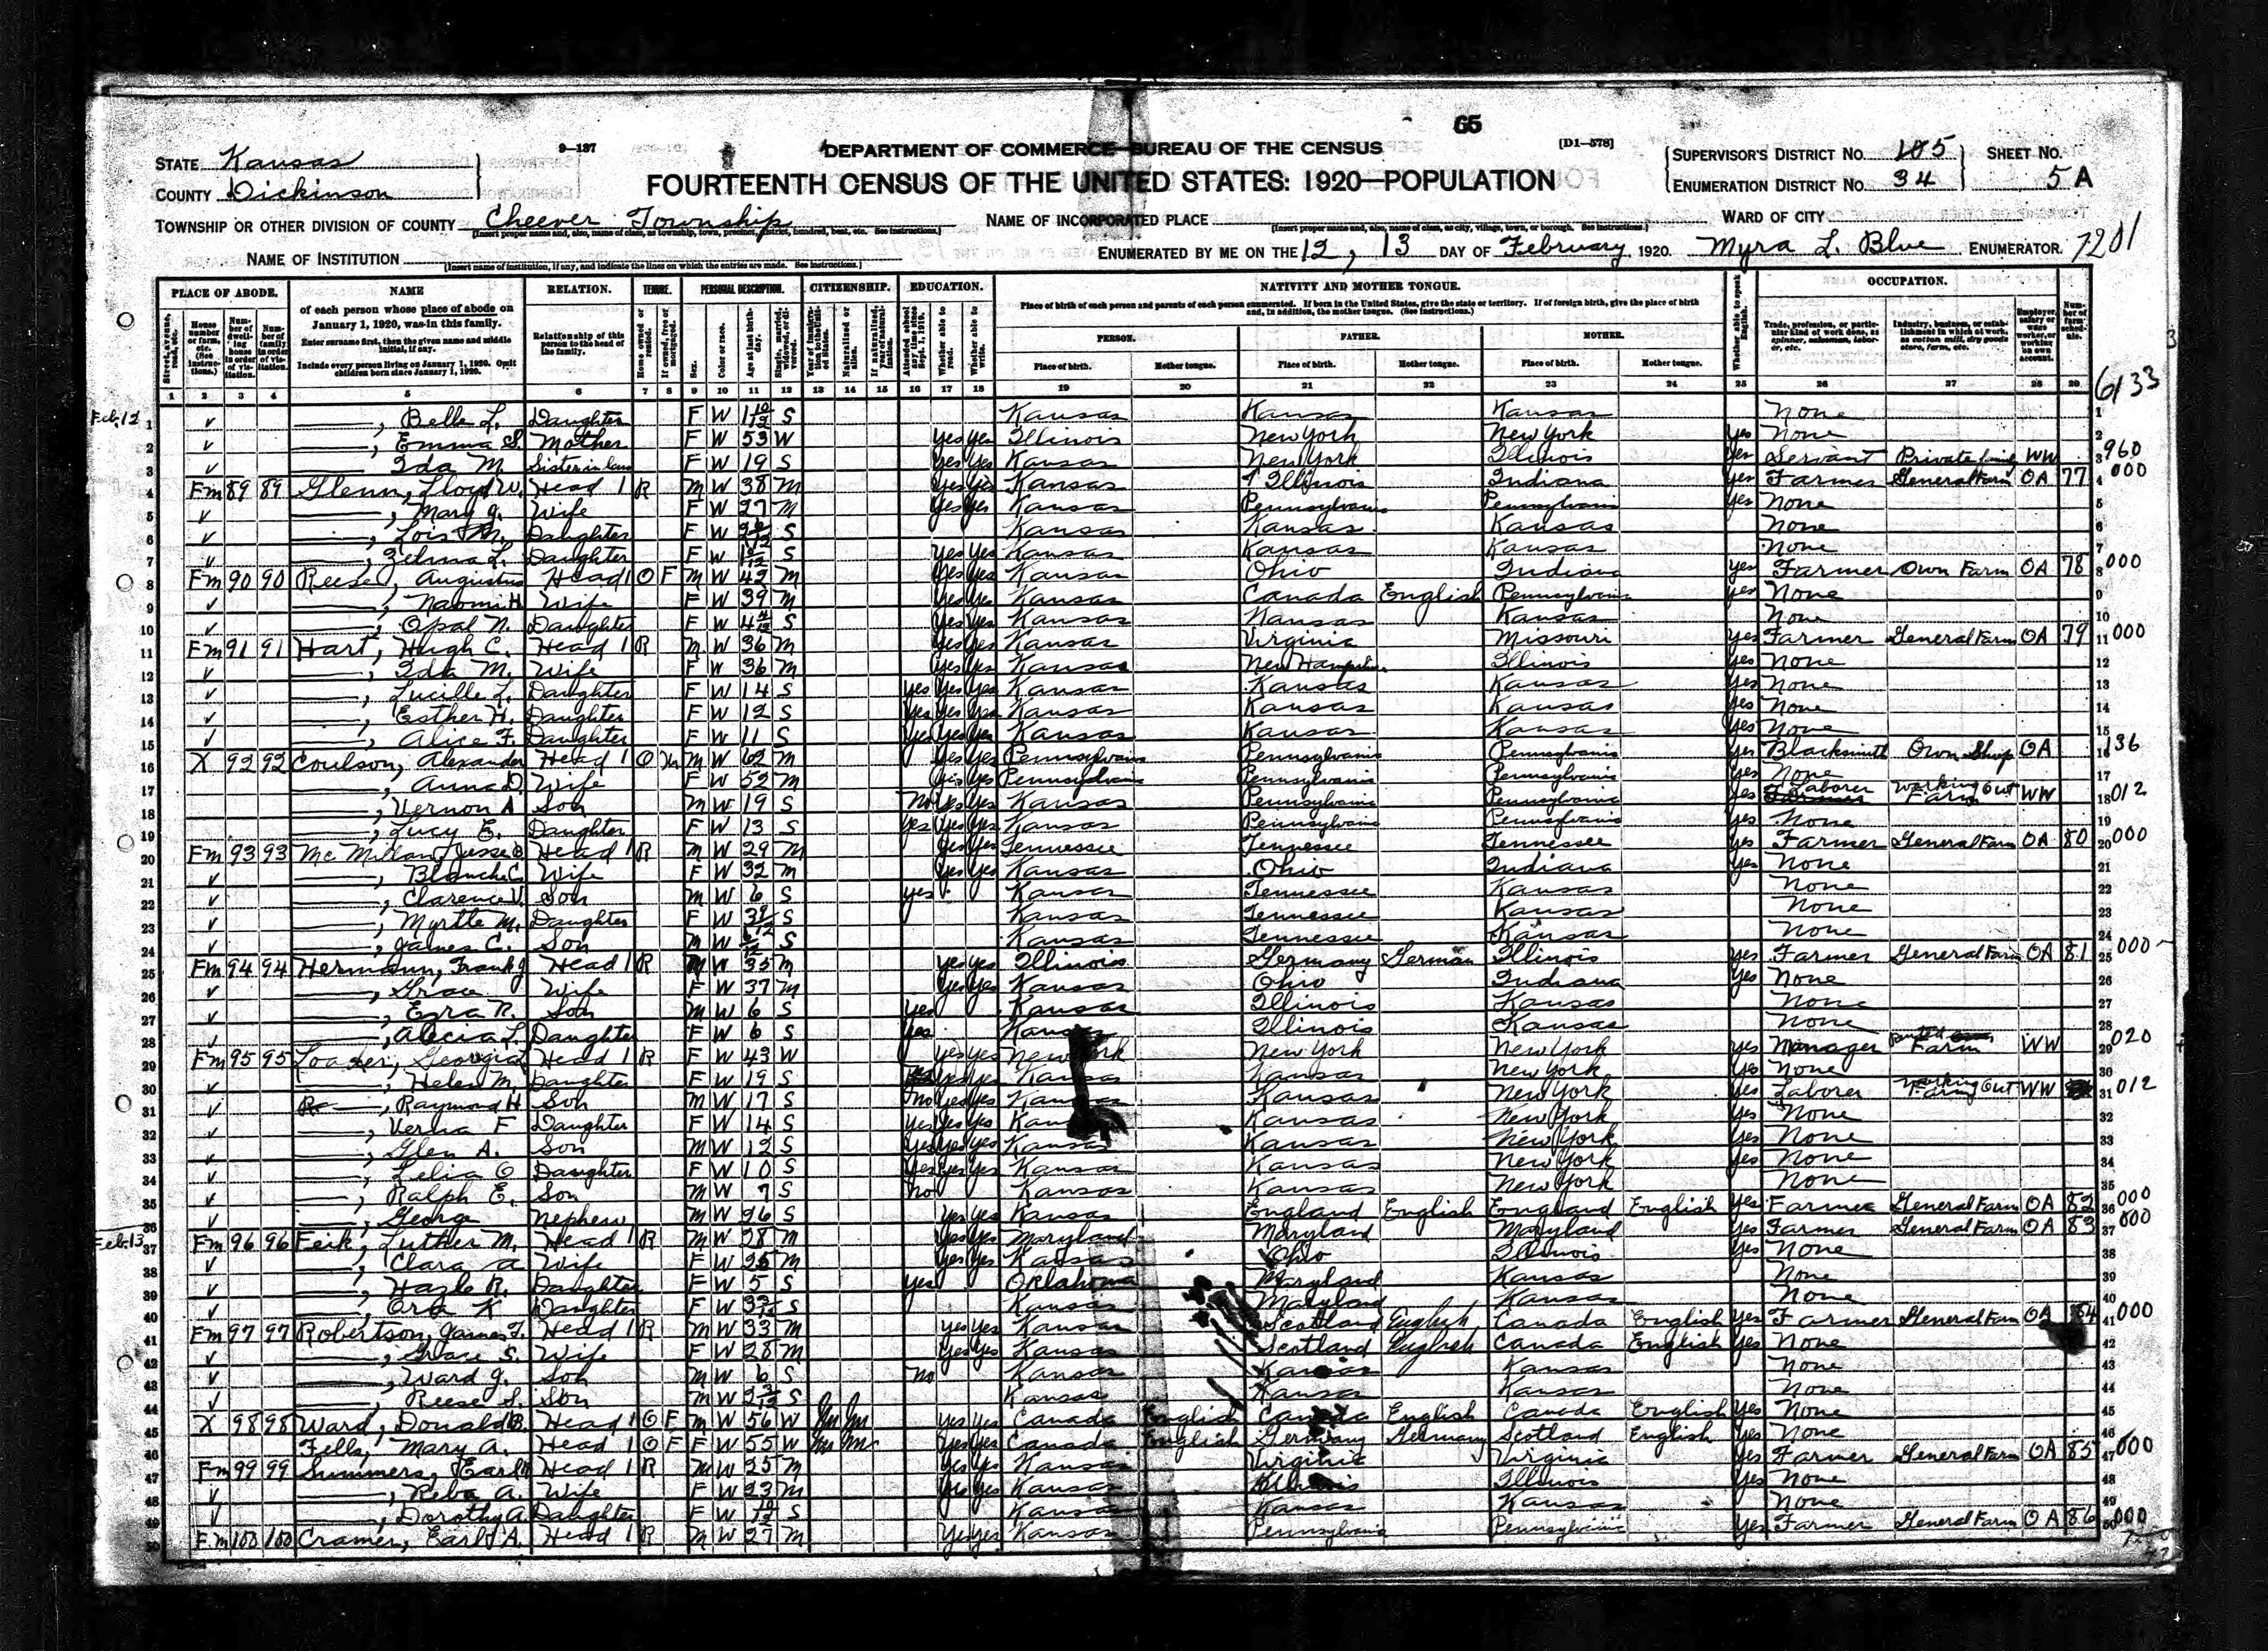 65
9—137
DEPARTMENT OF COMMERCE—BUREAU OF THE CENSUS
[D1—578]
STATE Kansas
COUNTY Dickinson
FOURTEENTH CENSUS OF THE UNITED STATES: 1920—POPULATION
SUPERVISOR'S DISTRICT No. 105 SHEET No.
ENUMERATION DISTRICT No. 34 5 A
TOWNSHIP OR OTHER DIVISION OF COUNTY Cheever Township NAME OF INCORPORATED PLACE WARD OF CITY
NAME OF INSTITUTION ENUMERATED BY ME ON THE 12, 13 DAY OF February, 1920. Myra L. Blue ENUMERATOR. 7201
PLACE OF ABODE. NAME RELATION. TENURE. PERSONAL DESCRIPTION. CITIZENSHIP. EDUCATION. NATIVITY AND MOTHER TONGUE. OCCUPATION.
of each person whose place of abode on January 1, 1920, was in this family.
Enter surname first, then the given name and middle initial, if any.
Include every person living on January 1, 1920. Omit children born since January 1, 1920.
Relationship of this person to the head of the family.
Place of birth of each person and parents of each person enumerated. If born in the United States, give the state or territory. If of foreign birth, give the place of birth and, in addition, the mother tongue. (See instructions.)
PERSON. FATHER. MOTHER.
Place of birth. Mother tongue. Place of birth. Mother tongue. Place of birth. Mother tongue.
1 2 3 4 5 6 7 8 9 10 11 12 13 14 15 16 17 18 19 20 21 22 23 24 25 26 27 28 29
6133
Feb. 12 1 ——, Belle L. Daughter F W 1 10/12 S Kansas Kansas Kansas None 1
2 ——, Emma S. Mother F W 53 W Yes Yes Illinois New York New York Yes None 2
3 ——, Ida M. Sister in law F W 19 S Yes Yes Kansas New York Illinois Yes Servant Private family WW 3 960
4 Fm 89 89 Glenn, Lloyd W. Head 1 R M W 38 M Yes Yes Kansas Illinois Indiana Yes Farmer General Farm OA 77 4 000
5 ——, Mary J. Wife F W 27 M Yes Yes Kansas Pennsylvania Pennsylvania Yes None 5
6 ——, Lois M. Daughter F W S Kansas Kansas Kansas None 6
7 ——, Zelma L. Daughter F W S Yes Yes Kansas Kansas Kansas None 7
8 Fm 90 90 Reese, Augustus Head 1 O F M W 42 M Yes Yes Kansas Ohio Indiana Yes Farmer Own Farm OA 78 8 000
9 ——, Naomi H Wife F W 39 M Yes Yes Kansas Canada English Pennsylvania Yes None 9
10 ——, Opal N. Daughter F W 4 4/12 S Yes Yes Kansas Kansas Kansas None 10
11 Fm 91 91 Hart, Hugh C. Head 1 R M W 36 M Yes Yes Kansas Virginia Missouri Yes Farmer General Farm OA 79 11 000
12 ——, Ida M. Wife F W 36 M Yes Yes Kansas New Hampshire Illinois Yes None 12
13 ——, Lucille L. Daughter F W 14 S Yes Yes Yes Kansas Kansas Kansas Yes None 13
14 ——, Esther H. Daughter F W 12 S Yes Yes Yes Kansas Kansas Kansas Yes None 14
15 ——, Alice F. Daughter F W 11 S Yes Yes Yes Kansas Kansas Kansas Yes None 15
16 X 92 92 Coulson, Alexander Head 1 O M M W 62 M Yes Yes Pennsylvania Pennsylvania Pennsylvania Yes Blacksmith Own Shop OA 16 136
17 ——, Anna D. Wife F W 52 M Yes Yes Pennsylvania Pennsylvania Pennsylvania Yes None 17
18 ——, Vernon A Son M W 19 S No Yes Yes Kansas Pennsylvania Pennsylvania Yes Laborer Working Out Farm WW 18 012
19 ——, Lucy E. Daughter F W 13 S Yes Yes Yes Kansas Pennsylvania Pennsylvania Yes None 19
20 Fm 93 93 McMillan, Jesse B Head 1 R M W 29 M Yes Yes Tennessee Tennessee Tennessee Yes Farmer General Farm OA 80 20 000
21 ——, Blanche C. Wife F W 32 M Yes Yes Kansas Ohio Indiana Yes None 21
22 ——, Clarence V. Son M W 6 S Yes Kansas Tennessee Kansas None 22
23 ——, Myrtle M. Daughter F W S Kansas Tennessee Kansas None 23
24 ——, James C. Son M W S Kansas Tennessee Kansas None 24
25 Fm 94 94 Hermann, Frank J Head 1 R M W 35 M Yes Yes Illinois Germany German Illinois Yes Farmer General Farm OA 81 25 000
26 ——, Grace Wife F W 37 M Yes Yes Kansas Ohio Indiana Yes None 26
27 ——, Ezra R. Son M W 6 S Yes Kansas Illinois Kansas None 27
28 ——, Alecia L. Daughter F W 6 S Yes Kansas Illinois Kansas None 28
29 Fm 95 95 Georgia Head 1 R F W 43 W Yes Yes New York New York New York Yes Manager Farm WW 29 020
30 ——, Helen M. Daughter F W 19 S Yes Yes Kansas Kansas New York Yes None 30
31 ——, Raymond H Son M W 17 S No Yes Yes Kansas Kansas New York Yes Laborer Working Out Farm WW 31 012
32 ——, Verna F Daughter F W 14 S Yes Yes Yes Kansas Kansas New York Yes None 32
33 ——, Glen A. Son M W 12 S Yes Yes Yes Kansas Kansas New York Yes None 33
34 ——, Lelia O Daughter F W 10 S Yes Yes Yes Kansas Kansas New York Yes None 34
35 ——, Ralph E. Son M W 7 S No Kansas Kansas New York None 35
36 ——, George Nephew M W 26 S Yes Yes Kansas England English England English Yes Farmer General Farm OA 82 36 000
Feb. 13 37 Fm 96 96 Feik, Luther M. Head 1 R M W 28 M Yes Yes Maryland Maryland Maryland Yes Farmer General Farm OA 83 37 000
38 ——, Clara A Wife F W 25 M Yes Yes Kansas Ohio Illinois Yes None 38
39 ——, Hazle R. Daughter F W 5 S Yes Oklahoma Maryland Kansas None 39
40 ——, Ora K Daughter F W S Kansas Maryland Kansas None 40
41 Fm 97 97 Robertson, James F. Head 1 R M W 33 M Yes Yes Kansas Scotland English Canada English Yes Farmer General Farm OA 84 41 000
42 ——, Grace S. Wife F W 28 M Yes Yes Kansas Scotland English Canada English Yes None 42
43 ——, Ward J. Son M W 6 S No Kansas Kansas Kansas None 43
44 ——, Reese S. Son M W S Kansas Kansas Kansas None 44
45 X 98 98 Ward, Donald B. Head 1 O F M W 56 W Yes Yes Canada English Canada English Canada English Yes None 45
46 Fells, Mary A. Head 1 O F F W 55 W Yes Yes Canada English Germany Germany Scotland English Yes None 46
47 Fm 99 99 Summers, Earl Head 1 R M W 25 M Yes Yes Kansas Virginia Virginia Yes Farmer General Farm OA 85 47 000
48 ——, Reba A. Wife F W 23 M Yes Yes Kansas Illinois Illinois Yes None 48
49 ——, Dorothy A. Daughter F W S Kansas Kansas Kansas None 49
50 Fm 100 100 Cramer, Earl A. Head 1 R M W 27 M Yes Yes Kansas Pennsylvania Pennsylvania Yes Farmer General Farm OA 86 50 000